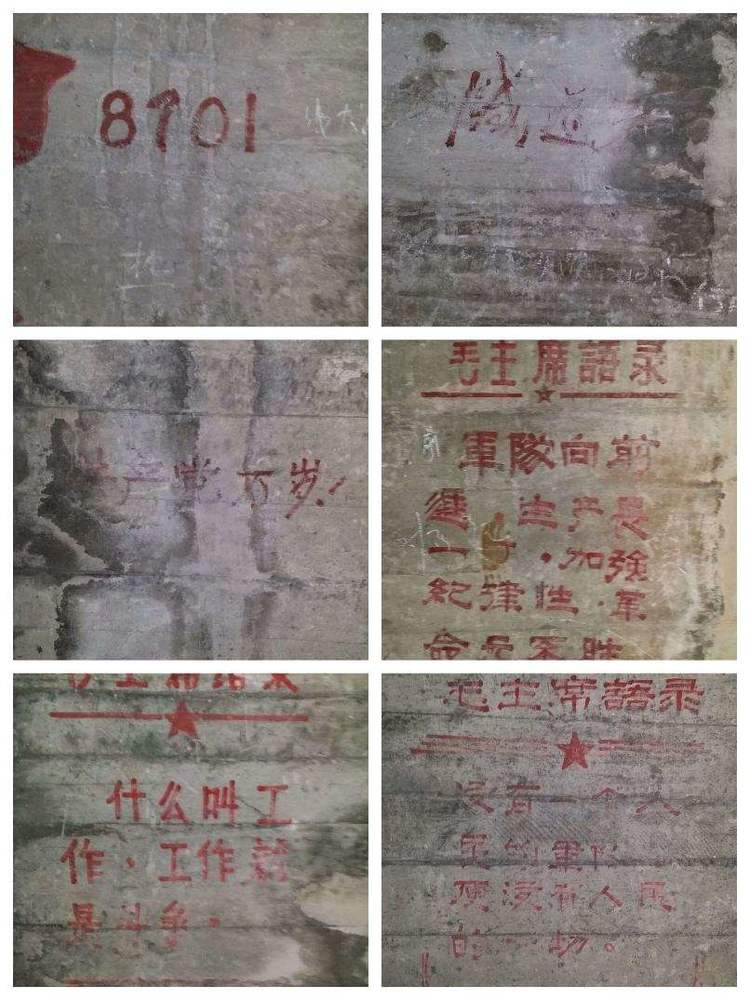 8701
伟大
隧道
共产党万岁！
毛主席語录
軍隊向前
進，生产長
一寸，加強
紀律性，革
命无不胜
毛主席語录
什么叫工
作，工作就
是斗争。
毛主席語录
没有一个人
民的軍队
便没有人民
的一切。